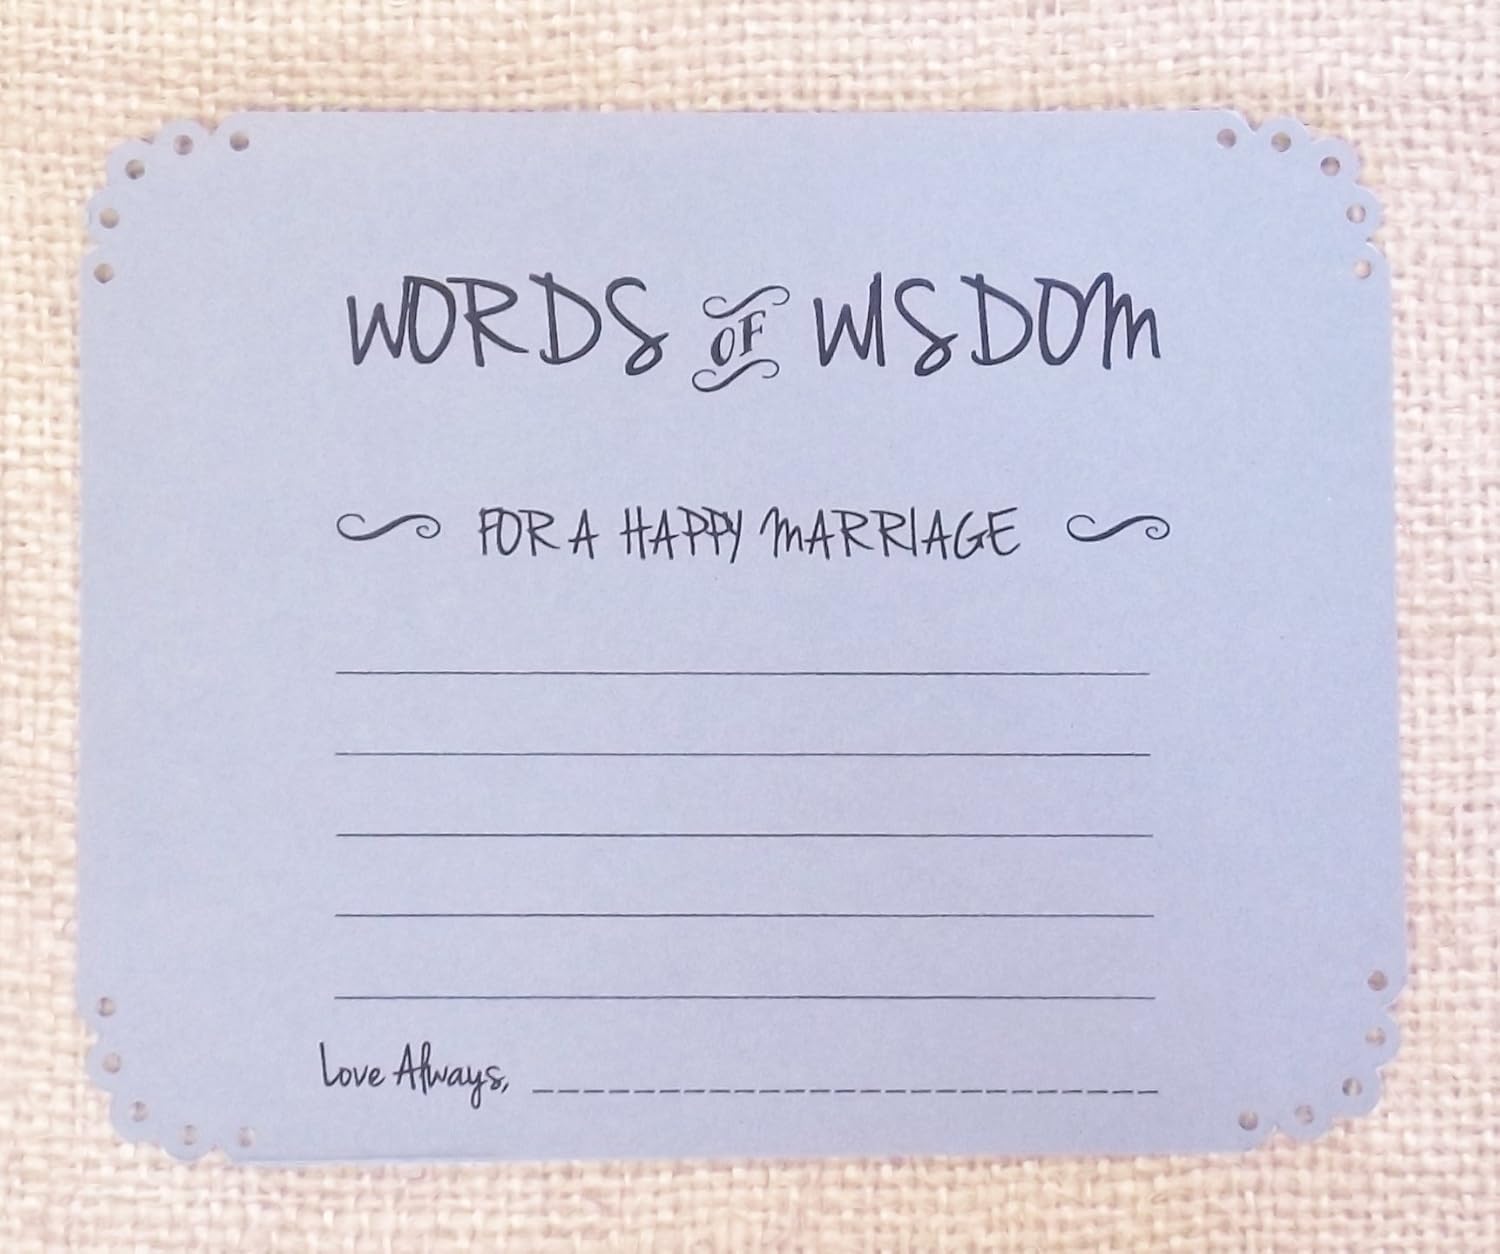 WORDS OF WISDOM
FOR A HAPPY MARRIAGE
Love Always,